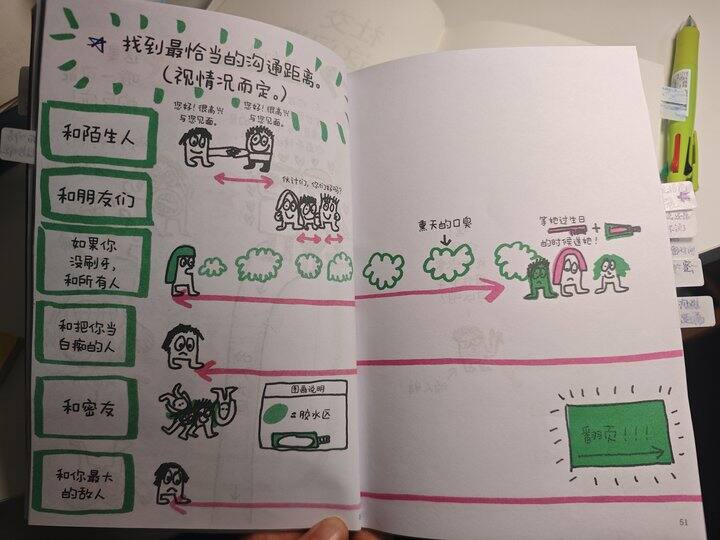 找到最恰当的沟通距离。
(视情况而定。)
和陌生人
您好!很高兴
与您见面。
您好!很高兴
与您见面。
和朋友们
伙计们,你们好吗?
如果你
没刷牙,
和所有人
熏天的口臭
拿她过生日
的时候送她!
+
和把你当
白痴的人
和密友
图画说明
=胶水区
翻页!!!
和你最大
的敌人
51